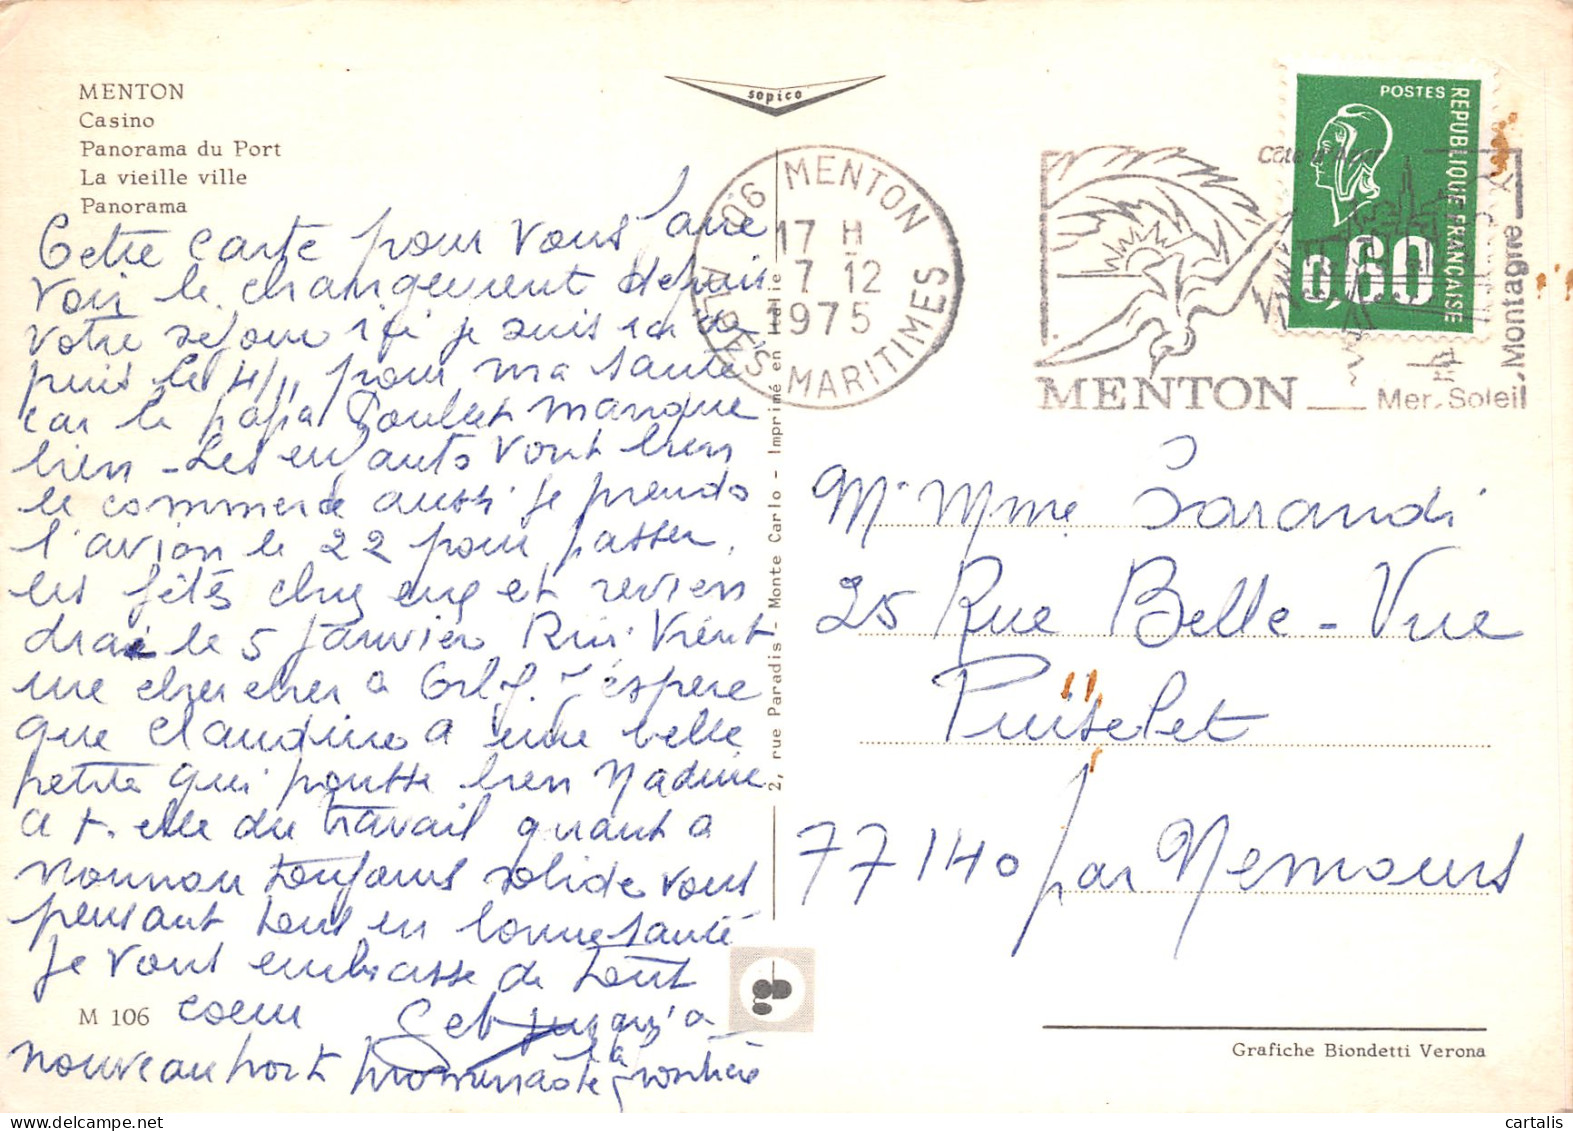 MENTON
Casino
Panorama du Port
La vieille ville
Panorama
Cette carte pour vous faire
voir le changement depuis
votre séjour ici je suis ici de
puis le 4/11 pour ma santé
car le papa Poulet manque
bien - Les enfants vont bien
le commerce aussi je prends
l'avion le 22 pour passer
les fêtes chez eux et revien
drai le 5 Janvier Riri vient
me chercher a Orly. J'espère
que Claudine a une belle
petite qui pousse bien Nadine
a t. elle du travail quant a
Nounou toujours solide vous
pensant tous en bonne santé
Je vous embrasse de tout
coeur
jusqu'a
nouveau port promenade
la frontière
M 106
sopico
2, rue Paradis - Monte Carlo - Imprimé en Italie
06 MENTON
17 H
7 12
1975
ALPES MARITIMES
Côte d'Azur
MENTON
Mer, Soleil, Montagne
POSTES
REPUBLIQUE FRANÇAISE
0,60
Mr Mme Sarandi
25 Rue Belle-Vue
Puiselet
77140 par Nemours
Grafiche Biondetti Verona
cartalis